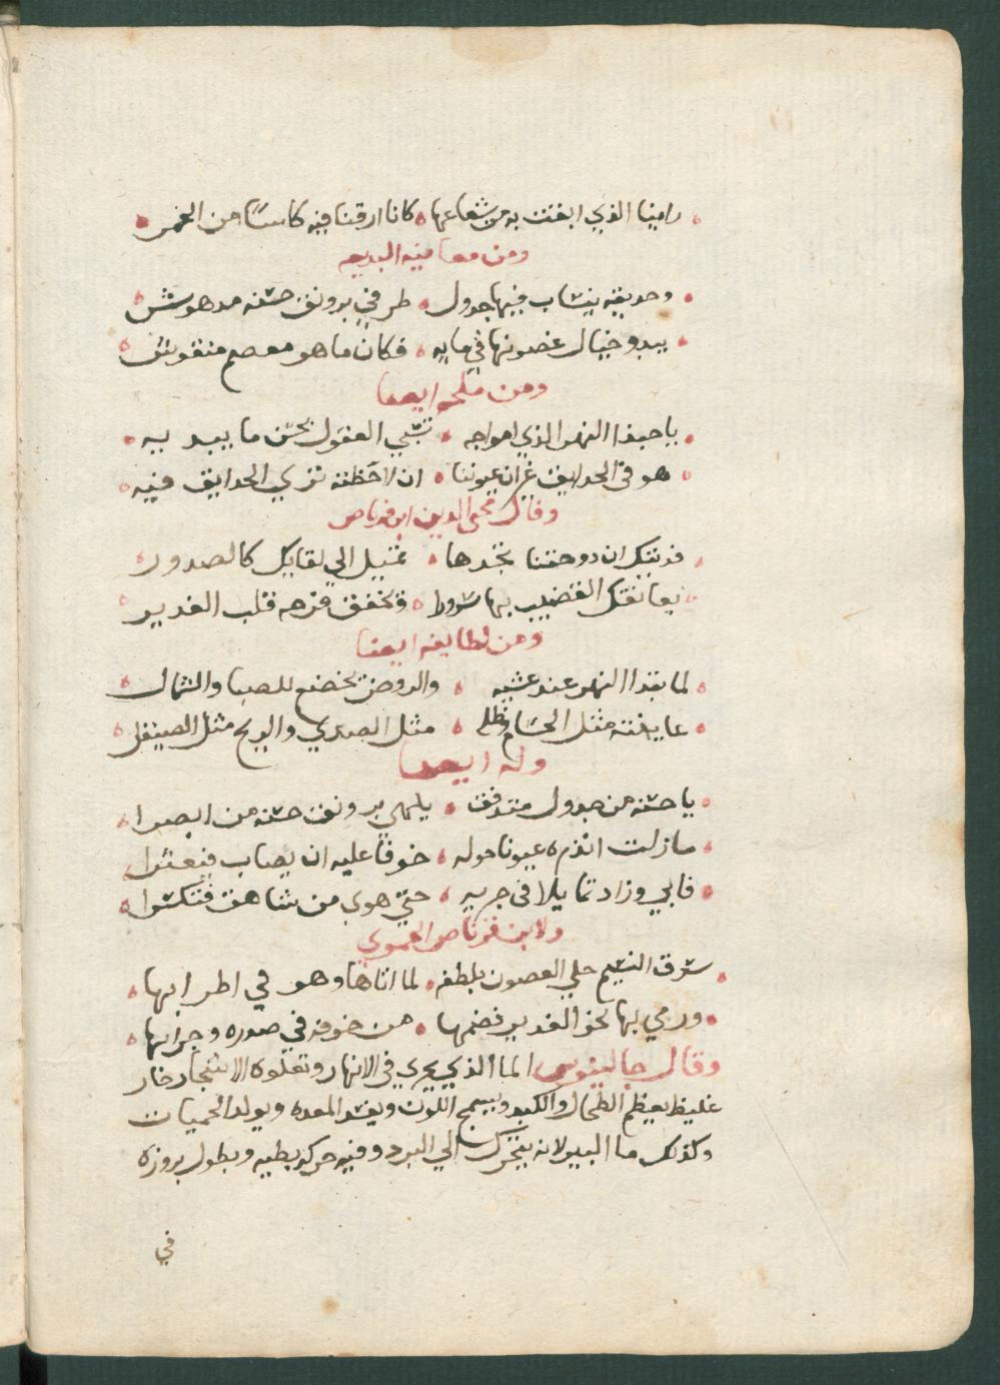 راينا الذي ابقت به من شعاعها • كانا ارقنا فيه كاسا من الخمر •
ومن معانيه البديعه
• وحديقة ينساب فيها جدول • طرفي برونق حسنه مدهوش
• يبدو خيال غصونها في مايه • فكان ما هو معصم منقوش
ومن ملحه ايضا
• يا حبذا النهر الذي امواجه • تسبي العقول بحسن ما يبديه •
• هو في الحدايق غير ان عيوننا • ان لاحظته تري الحدايق فيه •
وقال محي الدين ابن قرناص
• فديتك ان دوحتنا تجدها • تميل الي لقايك كالصدور •
• يعانقك القضيب بها سرورا • وتخفق فرحه قلب الغدير
ومن لطايفه ايضا
• لما تبدا النهر عند عشيه • والروض يخضع للصبا والشمال
• عاينته مثل الحسام وظله • مثل الصدي والريح مثل الصيقل
وله ايضا
• يا حسنه من جدول متدفق • يلهي برونق حسنه من ابصرا •
• ما زلت انذره عيونا حوله • خوفا عليه ان يصاب فيعثرا
• فابي وزاد تمايلا في جريه • حتي هوي من شاهق فتكسرا •
ولابن قرناص الحموي
• سرق النسيم حلي الغصون بلطفه • لما اتاها وهو في اطرابها •
• ورمي بها نحو الغدير فضمها • من خوفه في صدره وجرابها •
وقال جالينوس الما الذي يجري في الانهار وتعلوه الاشجار خار
غليظ يعظم الطحال والكبد ويسمج اللون ويفسد المعده ويولد الحميات
وكذلك ما البير لانه يتحرك الي البرد وفيه حركه بطيه وبطول بروزه
في